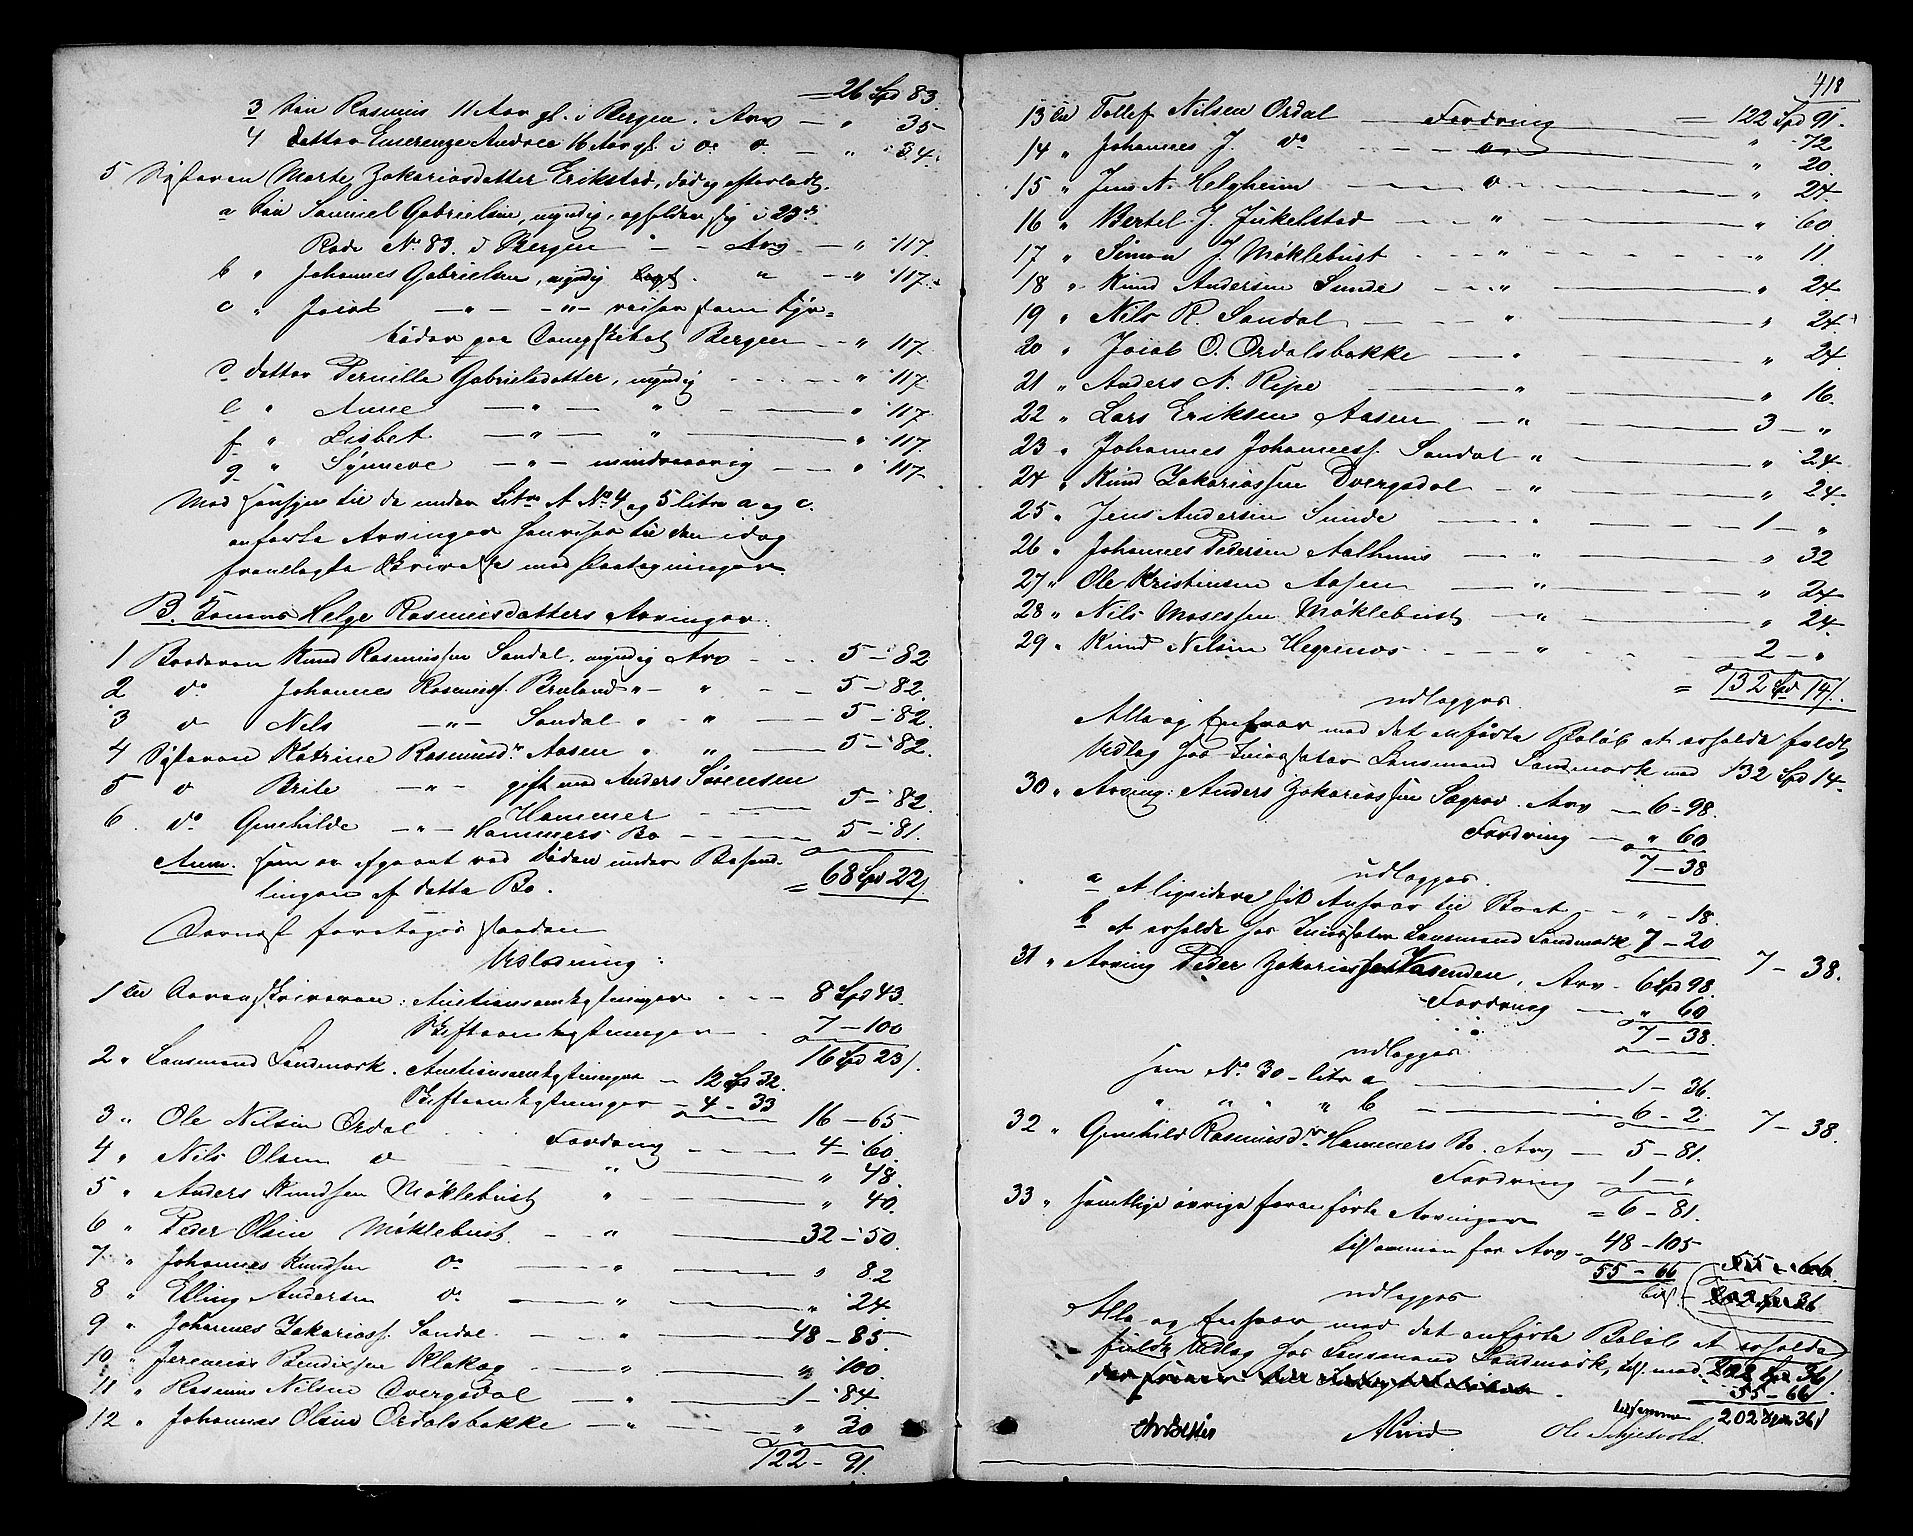 = 26 Spd 83.
3 Søn Rasmus 11 Aar gl. i Bergen. Arv — " 35
4 datter Enserenze Andrea 16 Aar gl. i do. o. — " 34.
5 Søsteren Marte Zakariasdatter Erikstad, død og efterladt.
a Søn Samuel Gabrielsen, myndig, opholder sig i 23de
Rode No. 83 i Bergen — Arv — " 117.
b " Johannes Gabrielsen, myndig " — " 117.
c " Jacob — " — " — reiser som Fyr=
bøder paa Dampskibet Bergen — " 117.
d datter Pernille Gabrielsdatter, myndig — " 117.
e " Anne — " — " — " 117.
f " Lisbet — " — " — " 117.
g " Synneve — " — mindreaarig — " 117.
Med Hensyn til de under Litra A No 4 og 5 litra a og c.
anførte Arvinger henvises til den idag
fremlagte Skrivelse med Paategninger.
B. Konens Helge Rasmusdatters Arvinger.
1 Broderen Knud Rasmussen Sandal, myndig Arv — 5 — 82
2 do Johannes Rasmuss. Bruland " — " — 5 — 82.
3 do Nils — " — Sandal " — " — 5 — 82.
4 Søsteren Katrine Rasmusdr Aasen " " — 5 — 82.
5 do Brite — " — gift med Anders Sørensen
Hammer — 5 — 82.
6. do Gunhilde — " — Hammers Bo — 5 — 81.
Anm. som er afgaaet ved Døden under Behand-
lingen af dette Bo. = 68 Spd 22/.
Dernæst foretoges saadan
Udlodning:
1 Til Sorenskriveren: Auctionsomkostninger — 8 Spd 43.
Skifteomkostninger — 7 — 100
16 Spd 23/.
2 " Lensmand Landmark. Auctionsomkostninger — 12 Spd 32.
Skifteomkostninger — 4 — 33
16 — 65.
3 " Ole Nilsen Ordal — Fordring — 4 — 60.
4 " Nils Olsen do — " — " 48.
5 " Anders Knudsen Møklebust " — " 40.
6 " Peder Olsen Møklebust. — " — 32 — 50.
7 " Johannes Knudsen do — " — " 82
8 " Elling Andersen do — " — " 24
9 " Johannes Zakariass. Sandal. — " — 48 — 85.
10 " Jeremias Bendixsen Klakeg — " — " 100.
11 " Rasmus Nilsen Dvergsdal — " — 1 — 84
12 " Johannes Olsen Ordalsbakke — " — " 30
122 — 91.
418
13 til Tollef Nilsen Ordal — Fordring — = 122 Spd 91.
14 " Johannes J. do — " — " 72
15 " Jens N. Helgheim — " — " 20.
16 " Bertel J. Jukelstad — " — " 24.
17 " Simon J. Møklebust — " — " 60.
18 " Knud Andersen Sunde — " — " 11
19 " Nils R. Sandal — " — " 24.
20 " Jacob O. Ordalsbakke — " — " 24.
21 " Anders N. Ripe — " — " 24
22 " Lars Eriksen Aasen — " — " 16.
23 " Johannes Johanness. Sandal " — 3 — "
24 " Knud Zakariassen Dvergsdal — " — " 24
25 " Jens Andersen Sunde — " — " 24.
26 " Johannes Pedersen Aalhus — " — 1 — "
27 " Ole Kristensen Aasen — " — " 32
28 " Nils Mosessen Møklebust — " — " 24.
29 " Knud Nilsen Hegrenes — " — " 24.
2 — "
udlægges. = 132 Spd 14/.
Alle og Enhver med det anførte Beløb at erholde fuldt
Udlæg hos Incassator Lensmand Landmark med 132 Spd 14.
30 " Arving: Anders Zakariassen Sægrov. Arv — 6 — 98.
Fordring — " 60
7 — 38
udlægges.
a At liqvidere sit Ansvar til Boet — " — 18.
b at erholde hos Incassator Lensmand Landmark 7 — 20
7 — 38.
31 " Arving Peder Zakariassen Vasenden, Arv — 6 Spd 98.
Fordring — " 60
7 — 38.
udlægges
som No 30 — litra a — 1 — 36.
" " " " b — 6 — 2.
7 — 38.
32 " Gunhild Rasmusdr Hammers Bo. Arv — 5 — 81.
Fordring — 1 — "
= 6 — 81.
33 " samtlige øvrige foranførte Arvinger
tilsammen for Arv — 48 — 105
55 — 66
55 — 66.
udlægges til. 202 Spd 36
Alle og Enhver med det anførte Beløb at erholde
fuldt Udlæg hos Lensmand Landmark, til. med
55 — 66/.
tilsammen 202 Spd 36/
Ole Schjelvold.